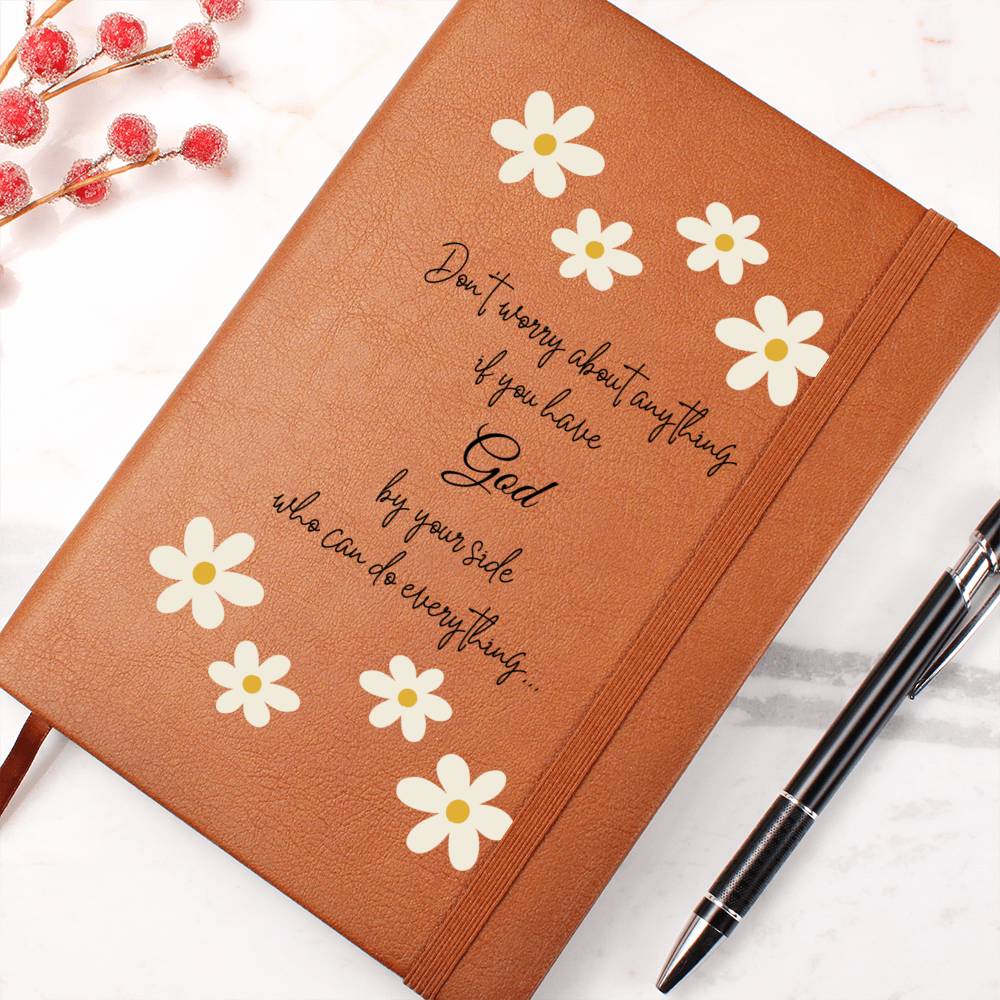 Don't worry about anything
if you have
God
by your side
who can do everything...